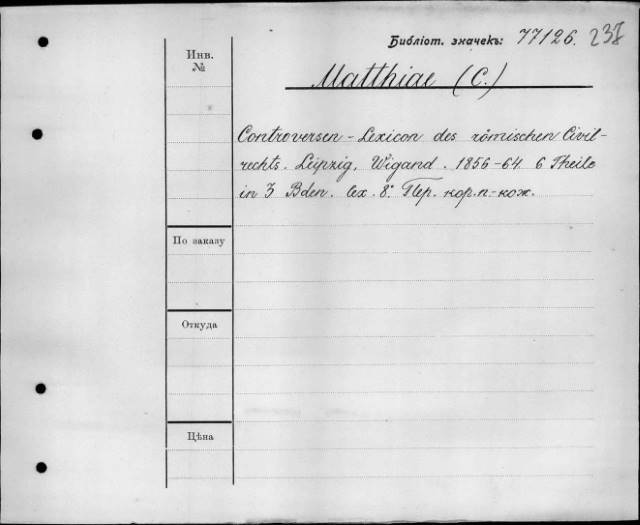 Библіот. значекъ: 77126. 238
Инв. №
Matthiae (C.)
Controversen-Lexicon des römischen Civil-
rechts. Leipzig, Wigand. 1856-64 6 Theile
in 3 Bden. lex. 8º. Пер. кор.п.-кож.
По заказу
Откуда
Цѣна